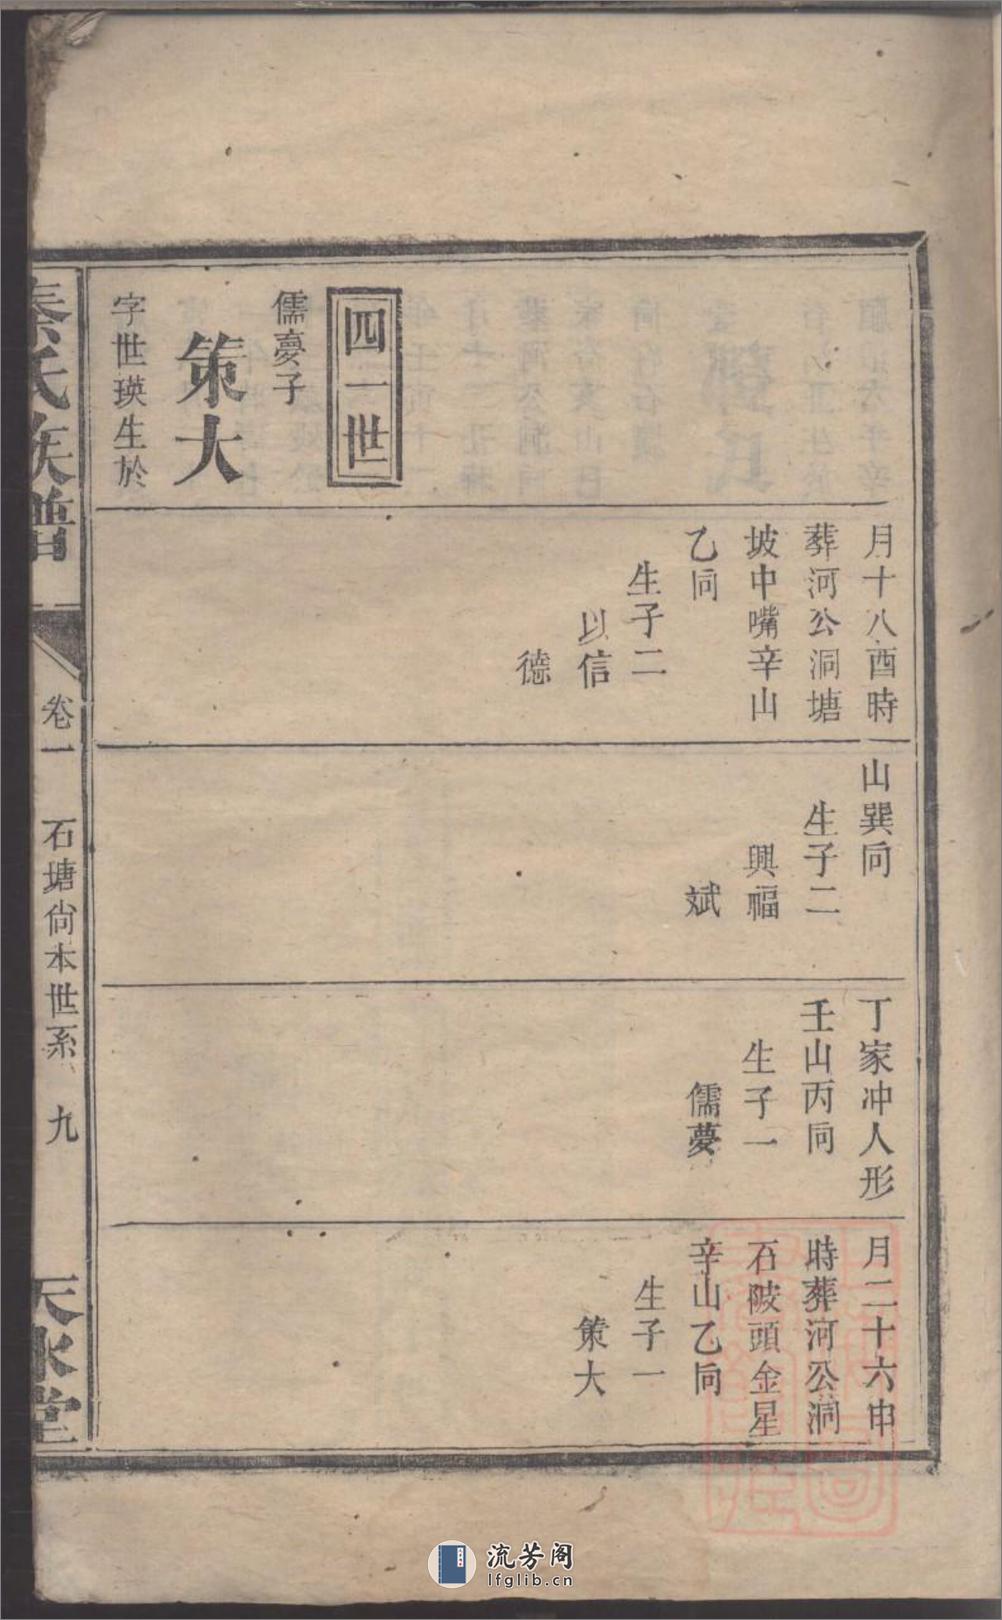 四一世
儒夢子
策大
字世瑛生於
月十八酉時
葬河公洞塘
坡中嘴辛山
乙向
生子二
以信
德
山巽向
生子二
興福
斌
丁家冲人形
壬山丙向
生子一
儒夢
月二十六申
時葬河公洞
石陂頭金星
辛山乙向
生子一
策大
秦氏族譜
卷一
石塘尙本世系
九
天水堂
流芳阁
lfglib.cn